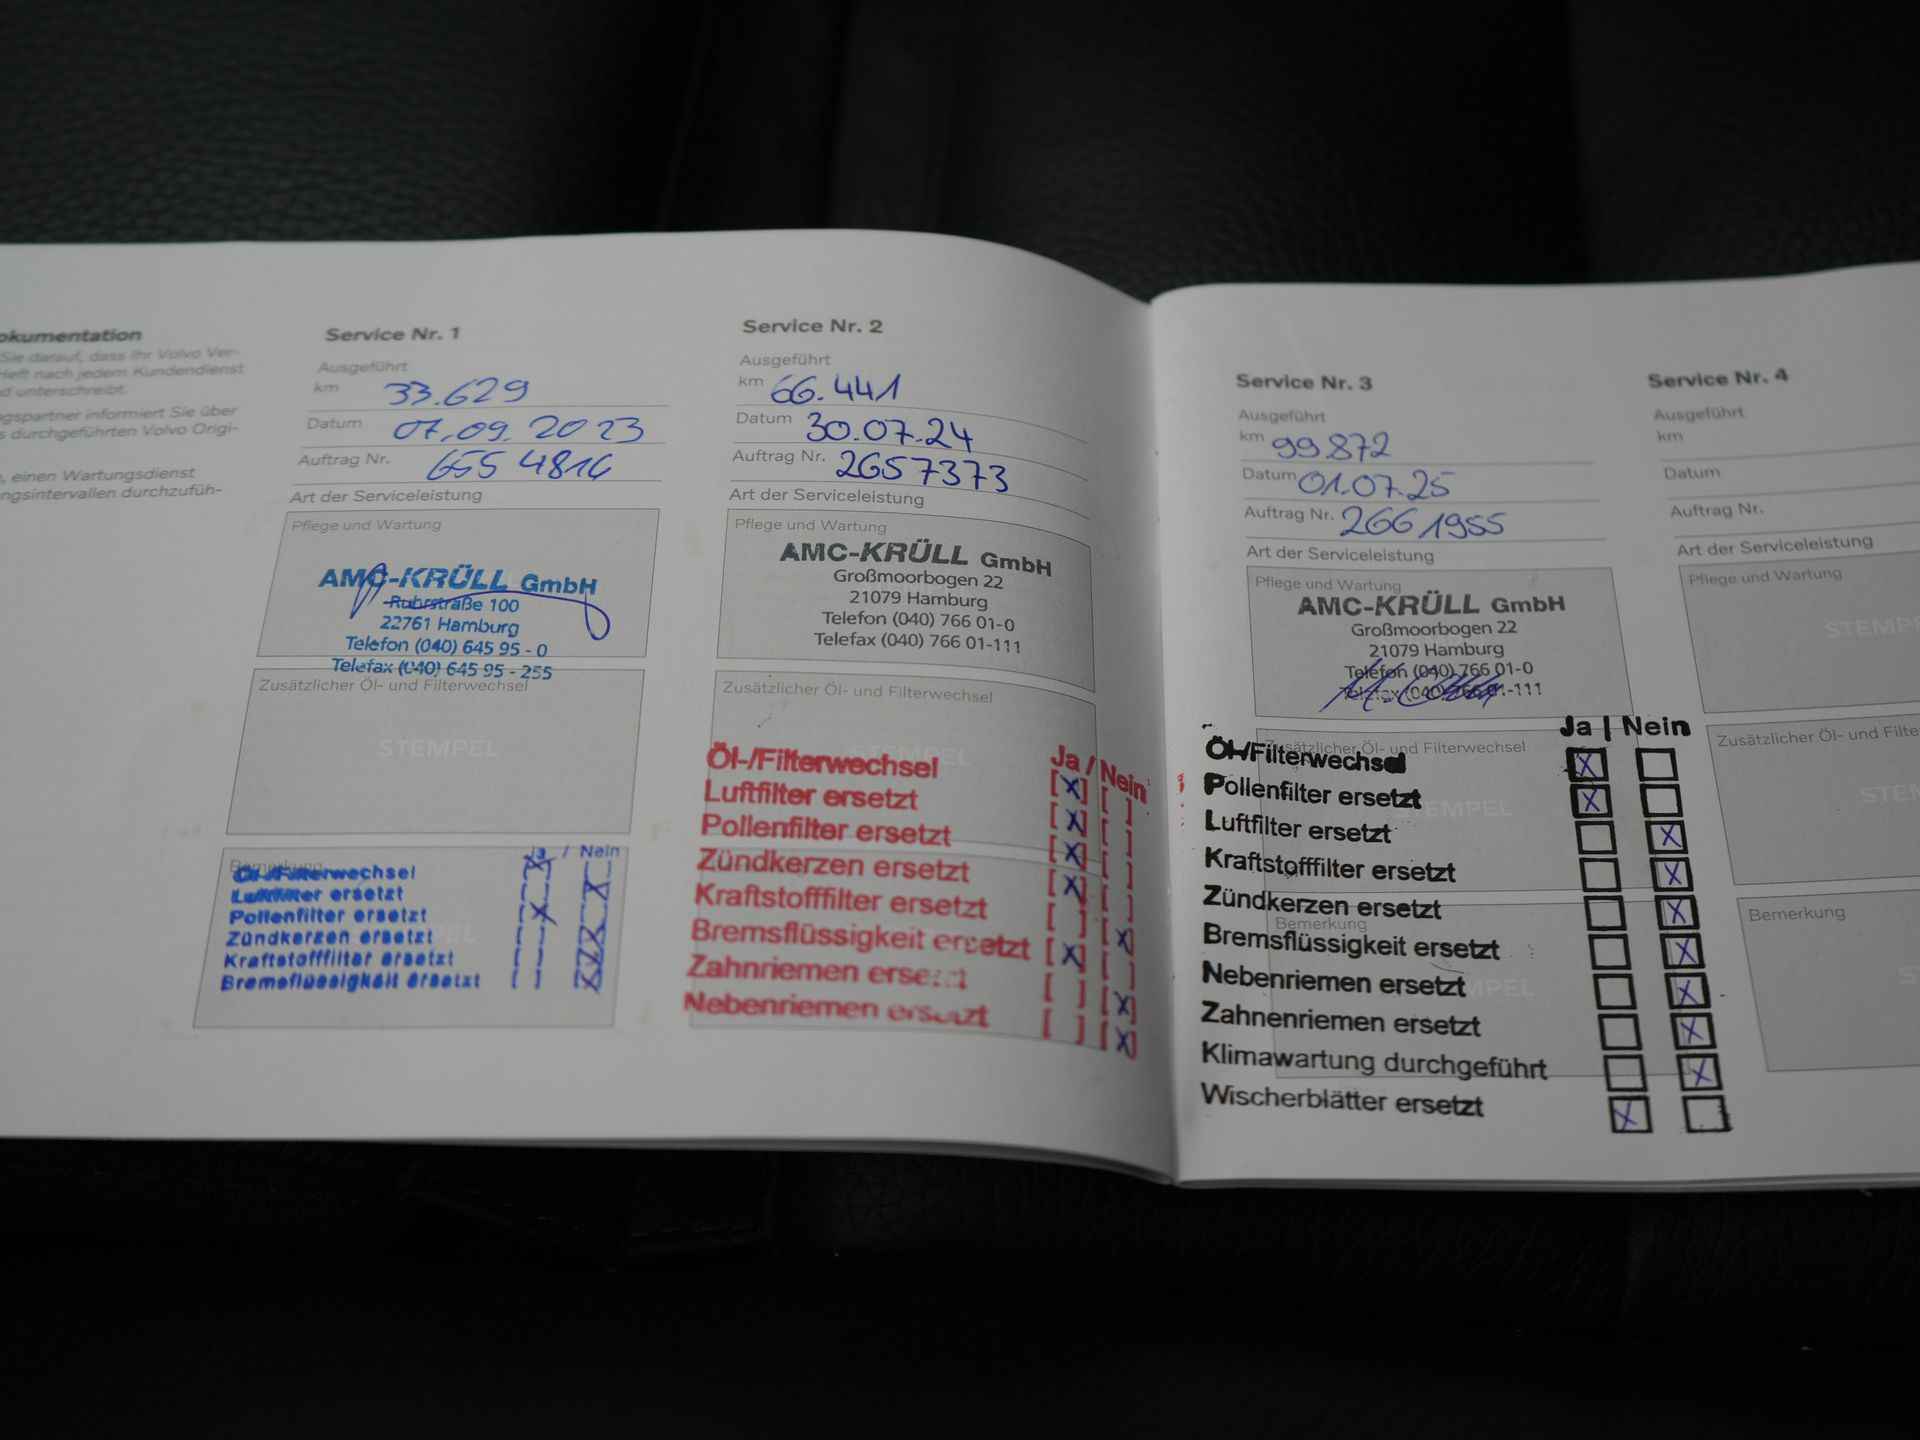 okumentation
Sie darauf, dass Ihr Volvo Ver-
Heft nach jedem Kundendienst
d unterschreibt.
gspartner informiert Sie über
s durchgeführten Volvo Origi-
, einen Wartungsdienst
ngsintervallen durchzufüh-
Service Nr. 1
Ausgeführt
km 33.629
Datum 07.09.2023
Auftrag Nr. 655 4816
Art der Serviceleistung
Pflege und Wartung
AMC-KRÜLL GmbH
Ruhrstraße 100
22761 Hamburg
Telefon (040) 645 95 - 0
Telefax (040) 645 95 - 255
Zusätzlicher Öl- und Filterwechsel
STEMPEL
Bemerkung
Ja / Nein
Öl-/Filterwechsel X
Luftfilter ersetzt X
Pollenfilter ersetzt X
Zündkerzen ersetzt X
Kraftstofffilter ersetzt X
Bremsflüssigkeit ersetzt X
Service Nr. 2
Ausgeführt
km 66.441
Datum 30.07.24
Auftrag Nr. 2657373
Art der Serviceleistung
Pflege und Wartung
AMC-KRÜLL GmbH
Großmoorbogen 22
21079 Hamburg
Telefon (040) 766 01-0
Telefax (040) 766 01-111
Zusätzlicher Öl- und Filterwechsel
Ja / Nein
Öl-/Filterwechsel [X] [ ]
Luftfilter ersetzt [X] [ ]
Pollenfilter ersetzt [X] [ ]
Zündkerzen ersetzt [X] [ ]
Kraftstofffilter ersetzt [ ] [X]
Bremsflüssigkeit ersetzt [X] [ ]
Zahnriemen ersetzt [ ] [X]
Nebenriemen ersetzt [ ] [X]
Service Nr. 3
Ausgeführt
km 99872
Datum 01.07.25
Auftrag Nr. 2661955
Art der Serviceleistung
Pflege und Wartung
AMC-KRÜLL GmbH
Großmoorbogen 22
21079 Hamburg
Telefon (040) 766 01-0
Telefax (040) 766 01-111
Zusätzlicher Öl- und Filterwechsel
STEMPEL
Bemerkung
Ja | Nein
Öl-/Filterwechsel X
Pollenfilter ersetzt X
Luftfilter ersetzt X
Kraftstofffilter ersetzt X
Zündkerzen ersetzt X
Bremsflüssigkeit ersetzt X
Nebenriemen ersetzt X
Zahnenriemen ersetzt X
Klimawartung durchgeführt X
Wischerblätter ersetzt X
Service Nr. 4
Ausgeführt
km
Datum
Auftrag Nr.
Art der Serviceleistung
Pflege und Wartung
STEMP
Zusätzlicher Öl- und Filte
STEM
Bemerkung